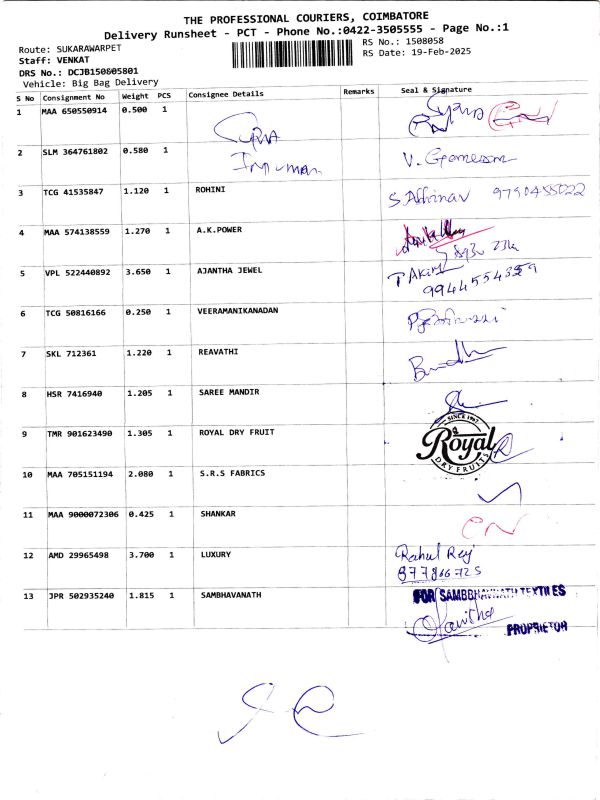 THE PROFESSIONAL COURIERS, COIMBATORE
Delivery Runsheet - PCT - Phone No.:0422-3505555 - Page No.:1
Route: SUKARAWARPET
RS No.: 1508058
Staff: VENKAT
RS Date: 19-Feb-2025
DRS No.: DCJB150805801
Vehicle: Big Bag Delivery
S No Consignment No Weight PCS Consignee Details Remarks Seal & Signature
1 MAA 650550914 0.500 1
2 SLM 364761802 0.580 1
3 TCG 41535847 1.120 1 ROHINI S. Abhinav
4 MAA 574138559 1.270 1 A.K.POWER
5 VPL 522440892 3.650 1 AJANTHA JEWEL 9944554359
6 TCG 50816166 0.250 1 VEERAMANIKANADAN
7 SKL 712361 1.220 1 REAVATHI
8 HSR 7416940 1.205 1 SAREE MANDIR
9 TMR 901623490 1.305 1 ROYAL DRY FRUIT SINCE 1967 Royal DRY FRUITS
10 MAA 705151194 2.080 1 S.R.S FABRICS
11 MAA 9000072306 0.425 1 SHANKAR
12 AMD 29965498 3.700 1 LUXURY Rahul
13 JPR 502935240 1.815 1 SAMBHAVANATH FOR SAMBBHAVNATH TEXTILES
Kavitha
PROPRIETOR